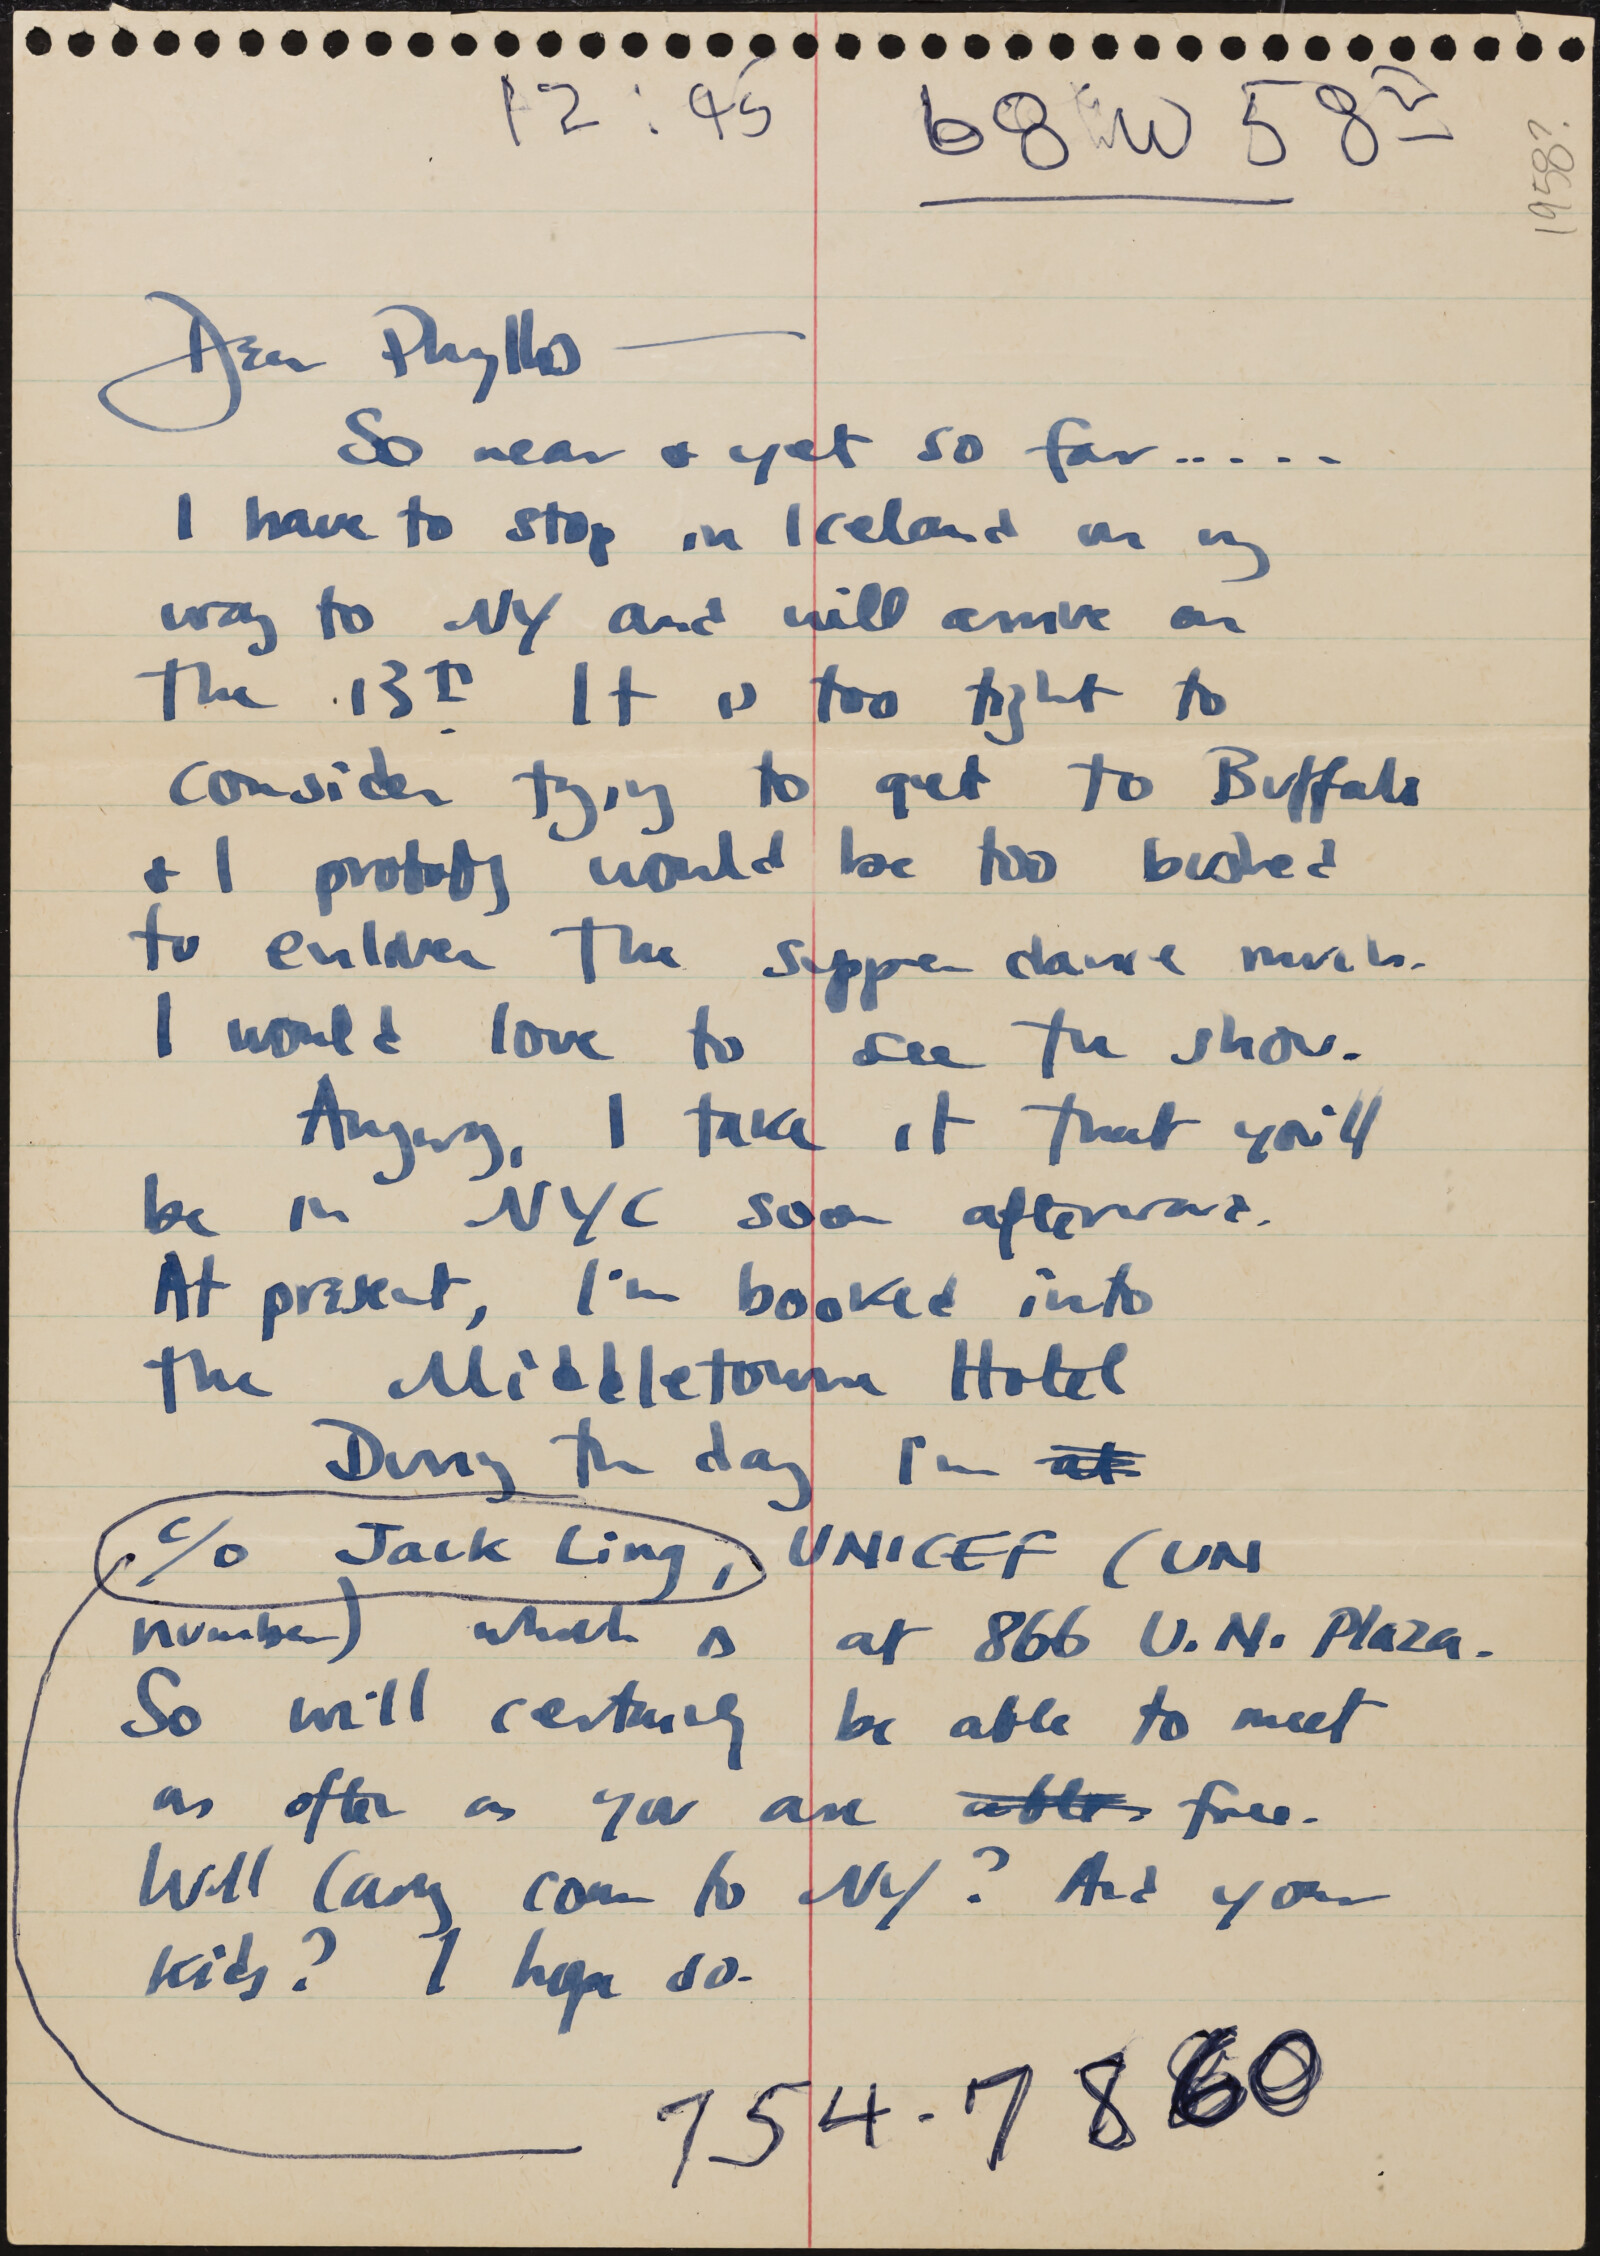 12:45 68 W 58th
1958?
Dear Phyllis —
So near & yet so far.....
I have to stop in Iceland on my
way to NY and will arrive on
the 13th It is too tight to
consider trying to get to Buffalo
& I probably would be too bushed
to enliven the supper dance much.
I would love to see the show.
Anyway, I take it that you'll
be in NYC soon afterward.
At present, I'm booked into
the Middletowne Hotel
During the day I'm at
c/o Jack Ling, UNICEF (UN
number) which is at 866 U.N. Plaza.
So will certainly be able to meet
as often as you are able free.
Will Cary come to NY? And your
kids? I hope so.
754-7860